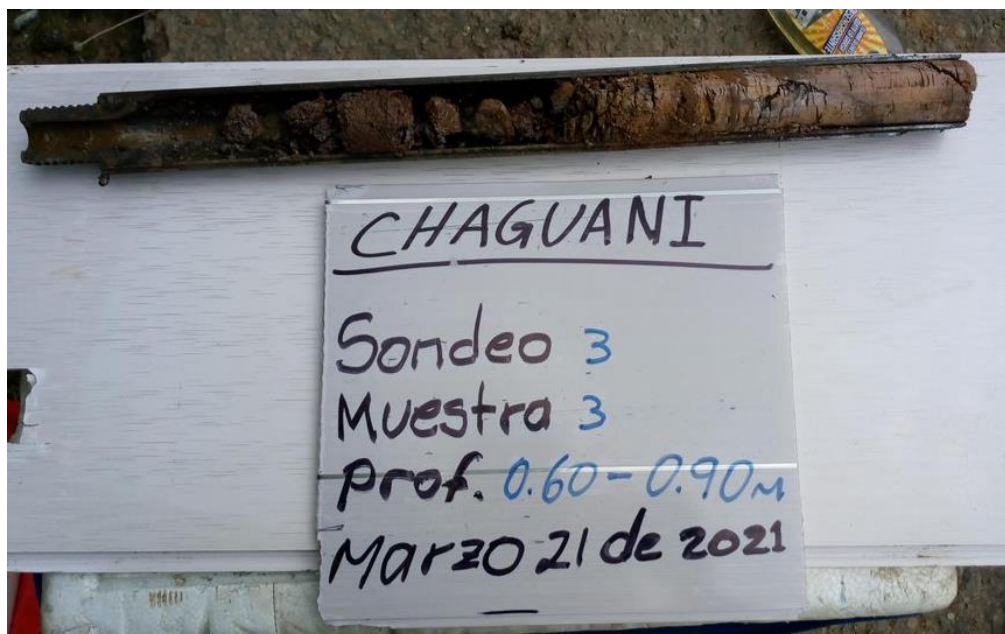 CHAGUANI
Sondeo 3
Muestra 3
Prof. 0.60-0.90M
Marzo 21 de 2021